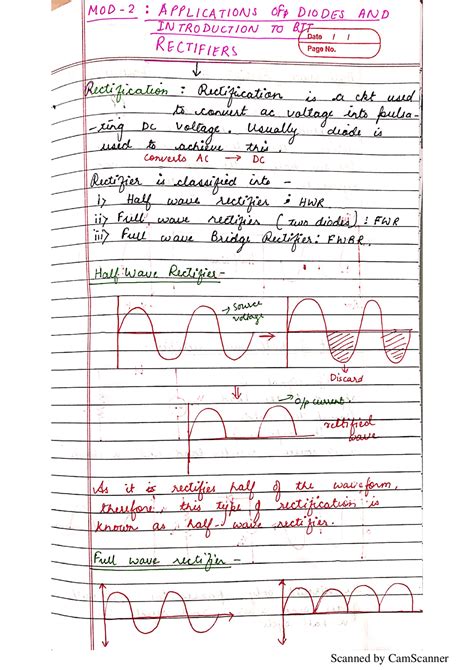 MOD-2 : APPLICATIONS OF DIODES AND
INTRODUCTION TO BJT
Date / /
Page No.
RECTIFIERS
Rectification : Rectification is a ckt used
to convert ac voltage into pulsa-
-ting DC voltage. Usually diode is
used to achieve this.
converts AC → DC
Rectifier is classified into -
i) Half wave rectifier : HWR
ii) Full wave rectifier (two diodes) : FWR
iii) Full wave Bridge Rectifier: FWBR.
Half Wave Rectifier-
→ source
voltage
→
Discard
→ o/p current.
rectified
wave
As it is rectifies half of the waveform,
therefore, this type of rectification is
known as half wave rectifier.
Full wave rectifier -
Scanned by CamScanner